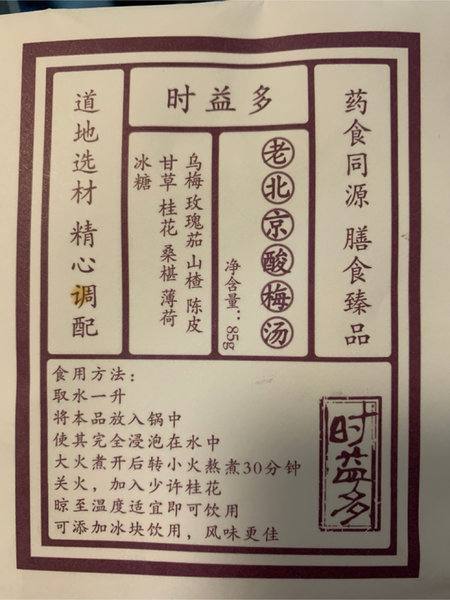 时益多
药食同源 膳食臻品
老北京酸梅汤
净含量：85g
乌梅 玫瑰茄 山楂 陈皮
甘草 桂花 桑椹 薄荷
冰糖
道地选材 精心调配
食用方法：
取水一升
将本品放入锅中
使其完全浸泡在水中
大火煮开后转小火熬煮30分钟
关火，加入少许桂花
晾至温度适宜即可饮用
可添加冰块饮用，风味更佳
时益多